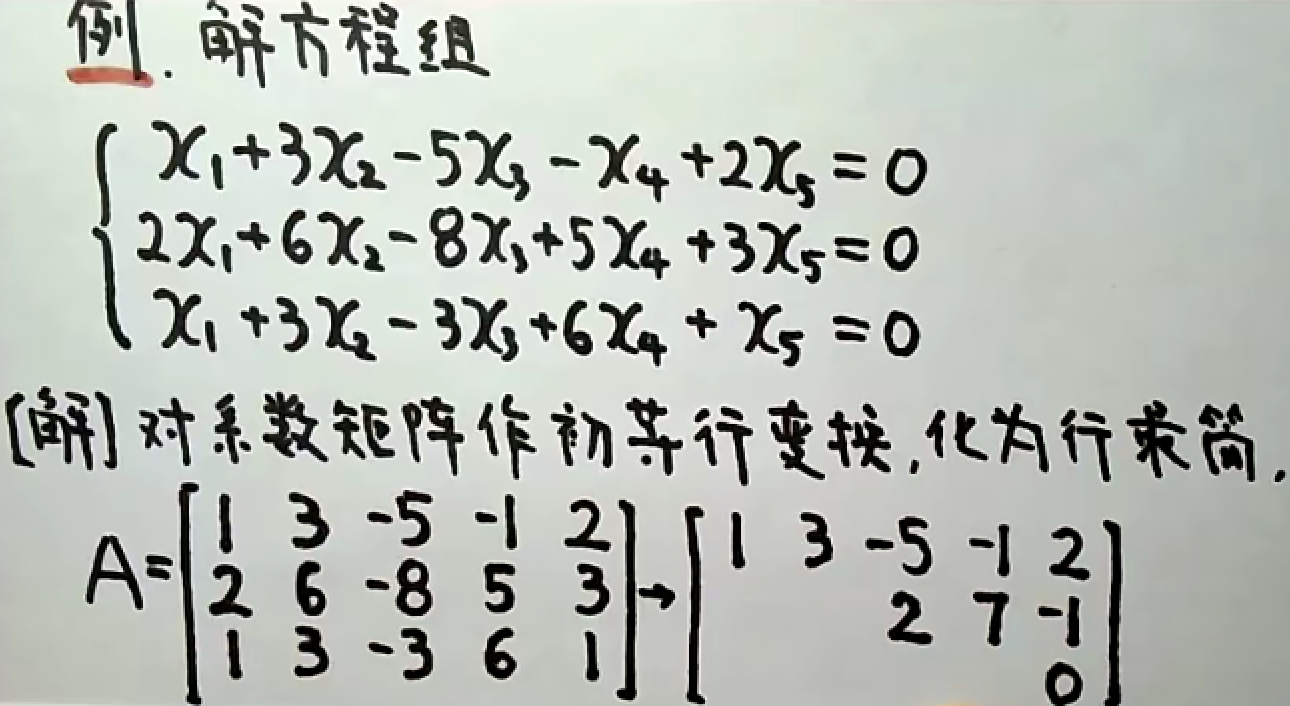 例. 解方程组
x₁+3x₂-5x₃-x₄+2x₅=0
2x₁+6x₂-8x₃+5x₄+3x₅=0
x₁+3x₂-3x₃+6x₄+x₅=0
[解]对系数矩阵作初等行变换,化为行最简.
A=[1 3 -5 -1 2 → [1 3 -5 -1 2
2 6 -8 5 3 2 7 -1
1 3 -3 6 1] 0]